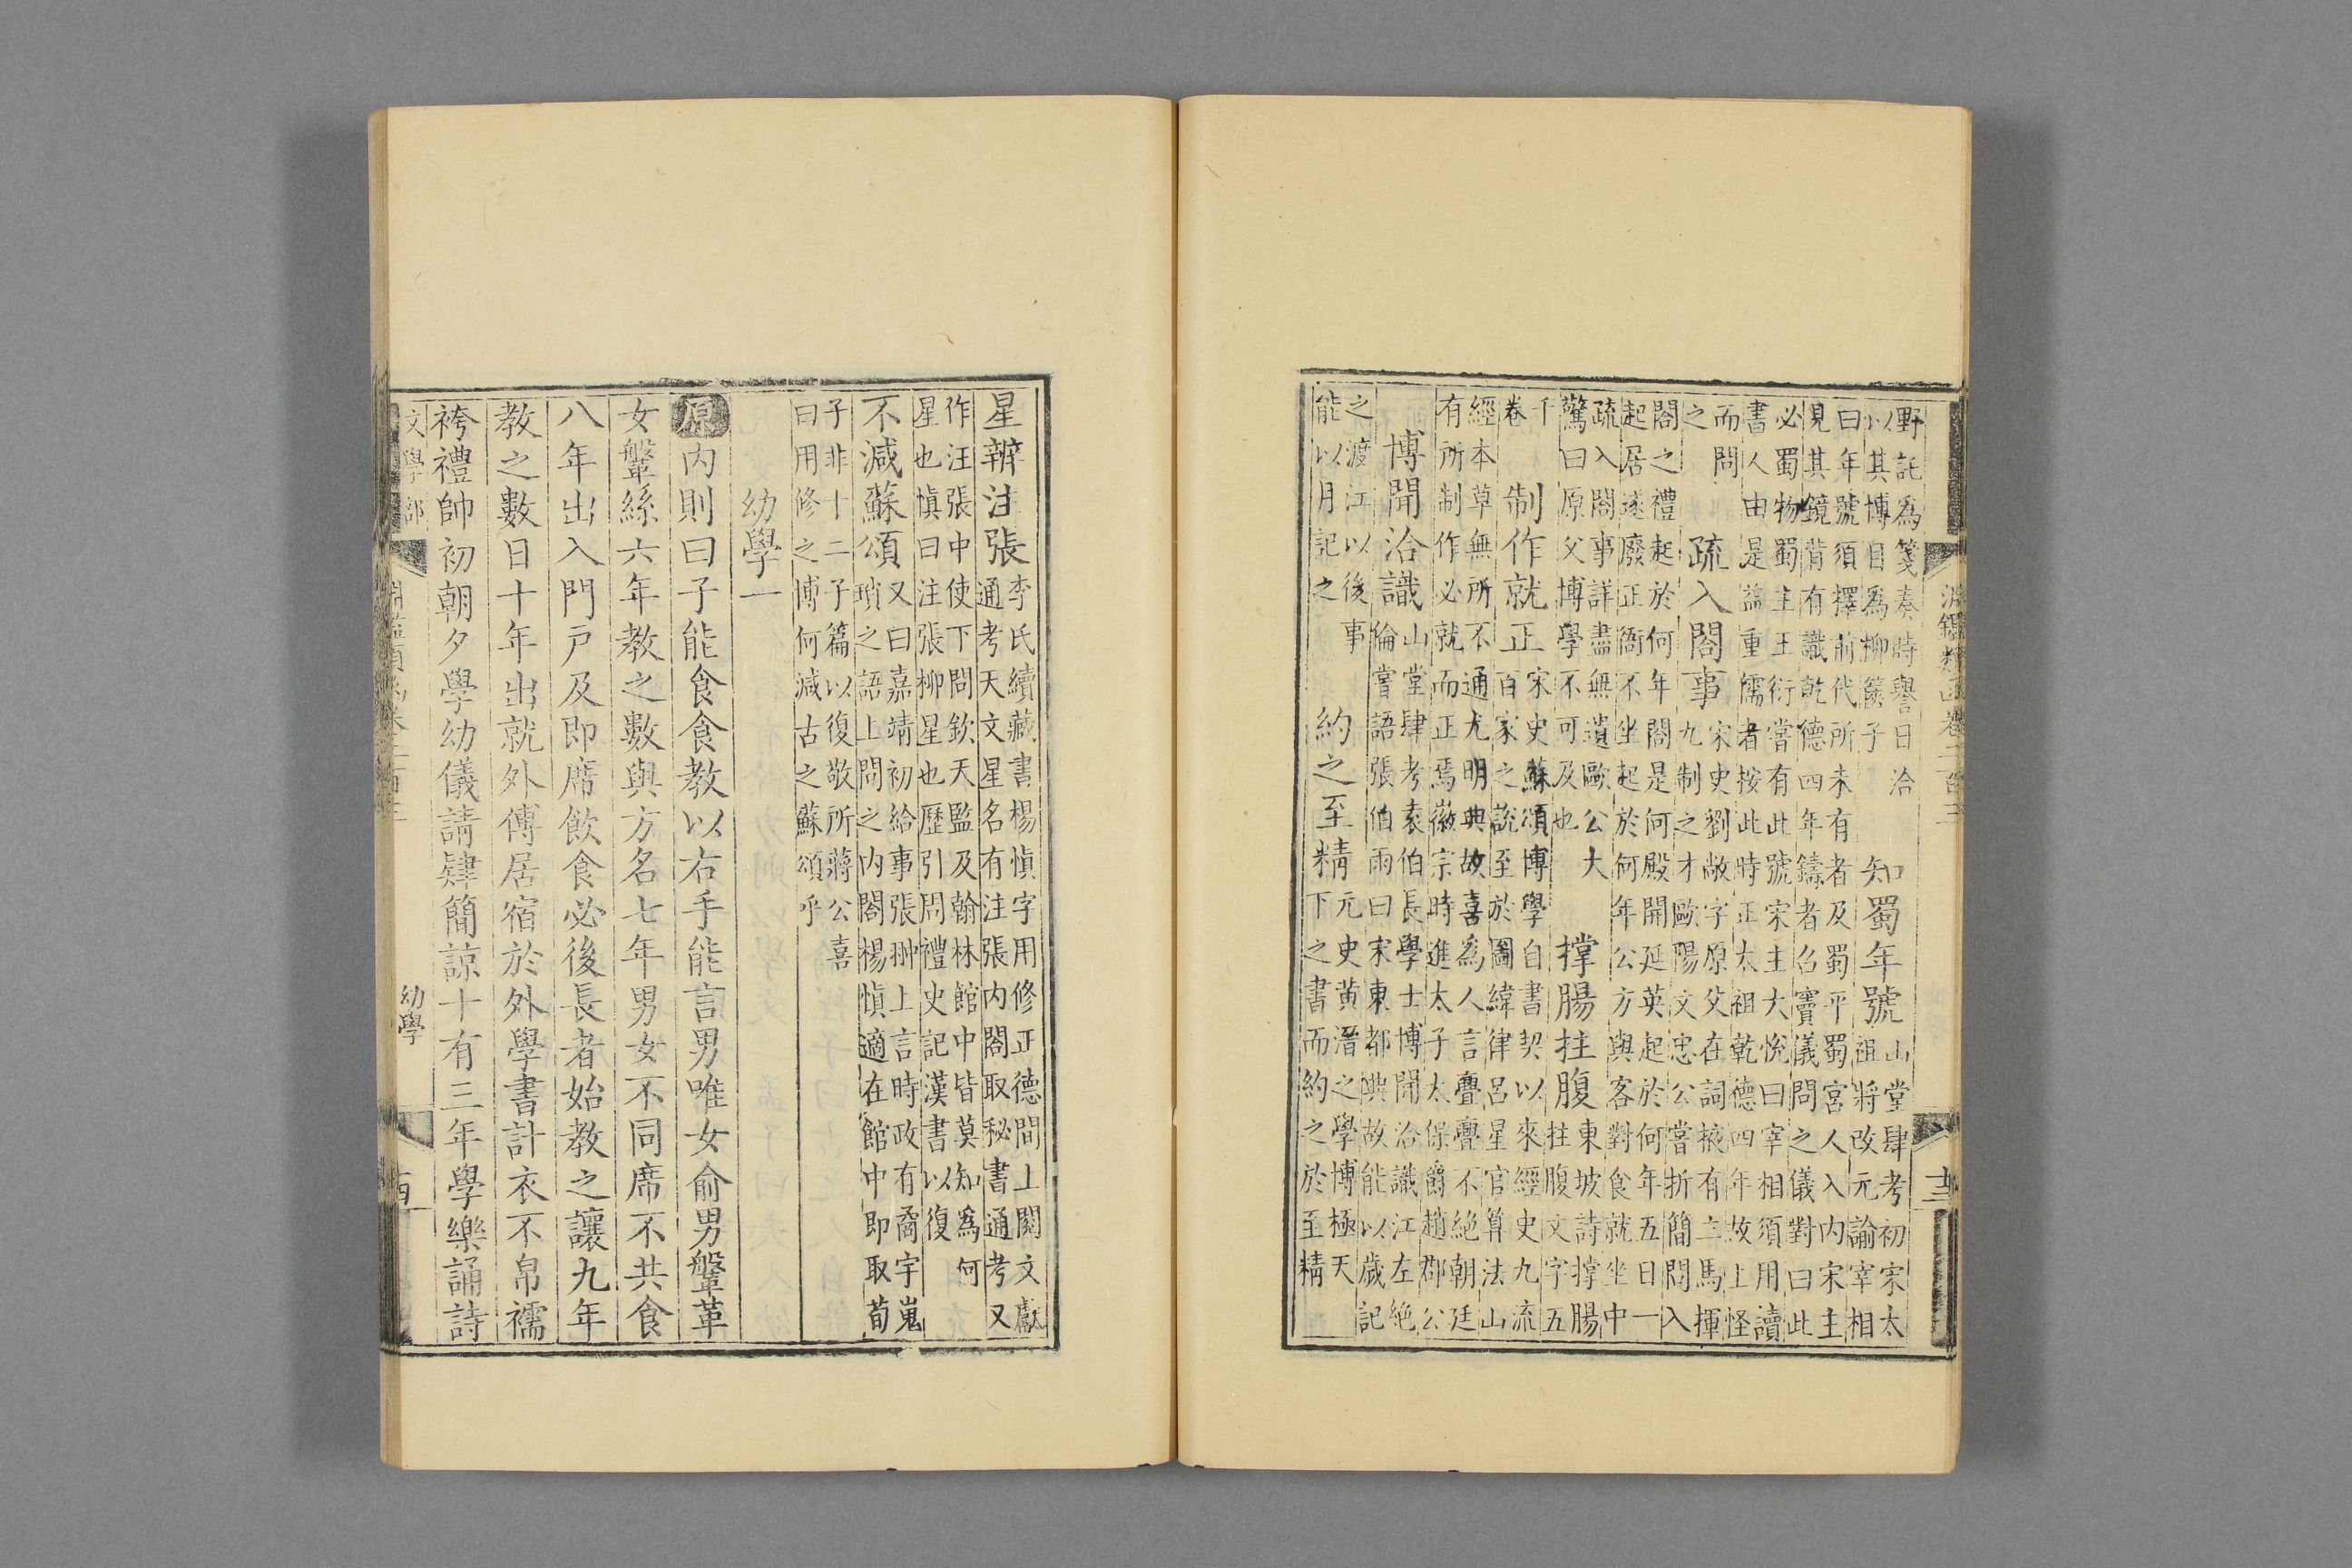 野託爲箋奏時譽曰洽
以其博目爲柳篋子
知蜀年號
山堂肆考初宋太
祖將改元諭宰相
曰年號須擇前代所未有者及蜀平蜀宮人入内宋主
見其鏡背有識乾德四年鑄者召竇儀問之儀對曰此
必蜀物蜀主王衍嘗有此號宋主大悅曰宰相須用讀
書人由是益重儒者按此時正太祖乾德四年故上怪
而問
之
疏入閣事
宋史劉敞字原父在詞掖有立馬揮
九制之才歐陽文忠公嘗折簡問入
閣之禮起於何年閣是何殿開延英起於何年五日一
起居遂廢正衙不坐起於何年公方與客對食就坐中
疏入閣事詳盡無遺歐公大
驚曰原父博學不可及也
撑腸拄腹
東坡詩撑腸
拄腹文字五
千
卷
制作就正
宋史蘇頌博學自書契以來經史九流
百家之說至於圖緯律呂星官算法山
經本草無所不通尤明典故喜爲人言亹亹不絶朝廷
有所制作必就而正焉徽宗時進太子太保爵趙郡公
博聞洽識
山堂肆考袁伯長學士博聞洽識江左絶
倫嘗語張伯雨曰宋東都典故能以歲記
之渡江以後事
能以月記之
約之至精
元史黄溍之學博極天
下之書而約之於至精
星辨注張
李氏續藏書楊愼字用修正德間上閱文獻
通考天文星名有注張内閣取秘書通考又
作汪張中使下問欽天監及翰林館中皆莫知爲何
星也愼曰注張柳星也歷引周禮史記漢書以復
不減蘇頌
又曰嘉靖初給事張翀上言時政有喬宇嵬
瑣之語上問之内閣楊愼適在館中即取荀
子非十二子篇以復敬所蔣公喜
曰用修之博何減古之蘇頌乎
幼學一
原内則曰子能食食教以右手能言男唯女俞男鞶革
女鞶絲六年教之數與方名七年男女不同席不共食
八年出入門戸及即席飲食必後長者始教之讓九年
教之數日十年出就外傅居宿於外學書計衣不帛襦
袴禮帥初朝夕學幼儀請肄簡諒十有三年學樂誦詩
文學部
幼學